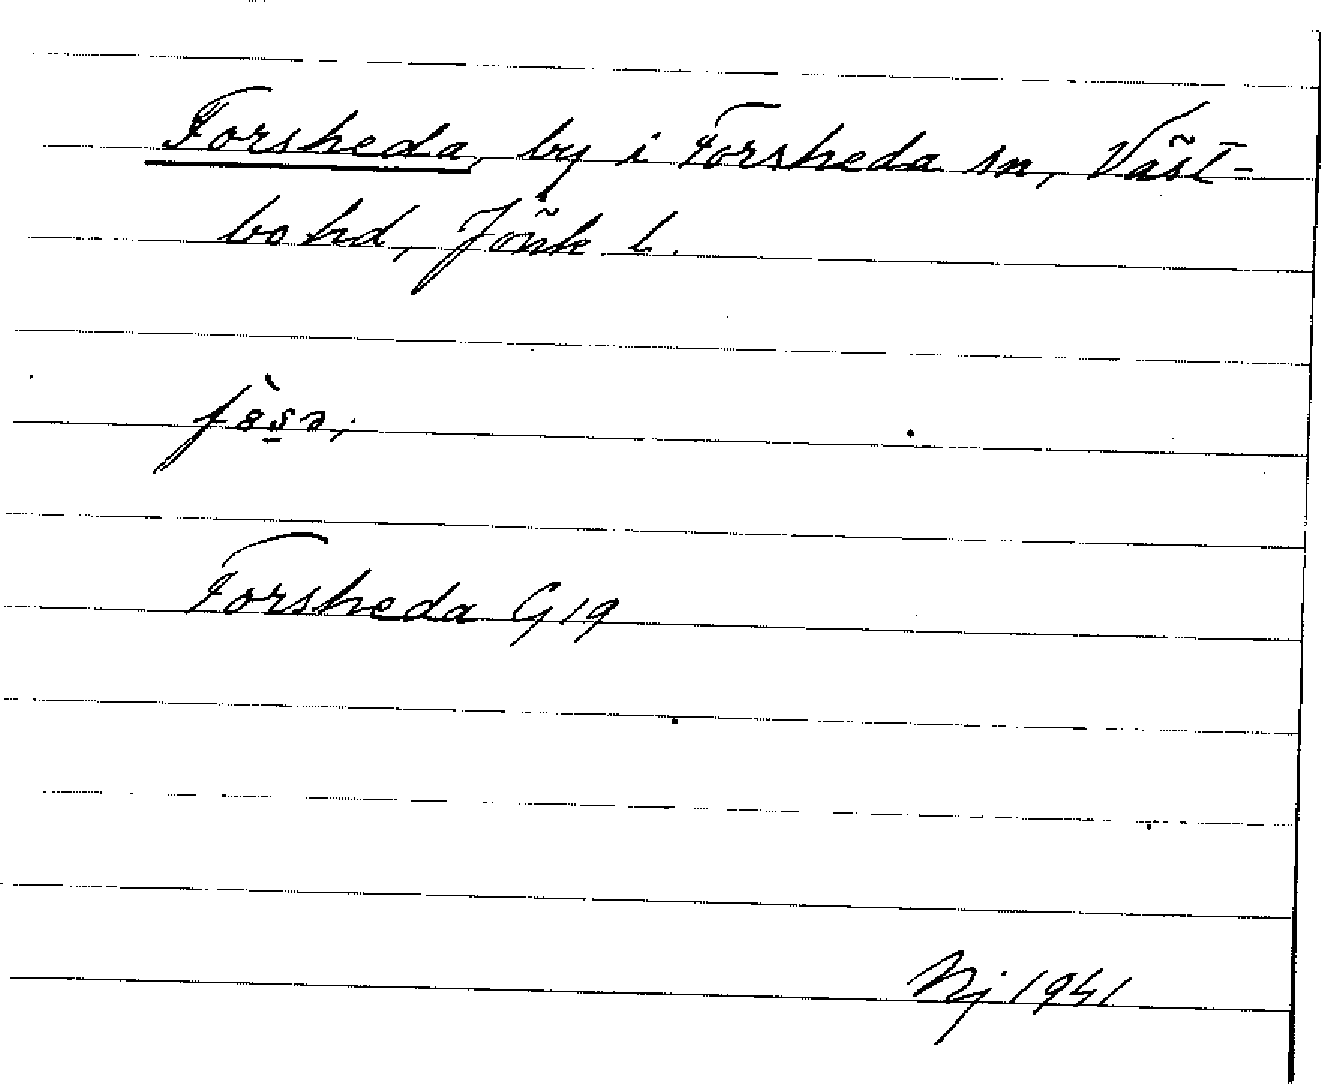 Forsheda, by i Forsheda sn, Väst-
bo hd, Jönk l.
Forsheda G19
Nj 1941